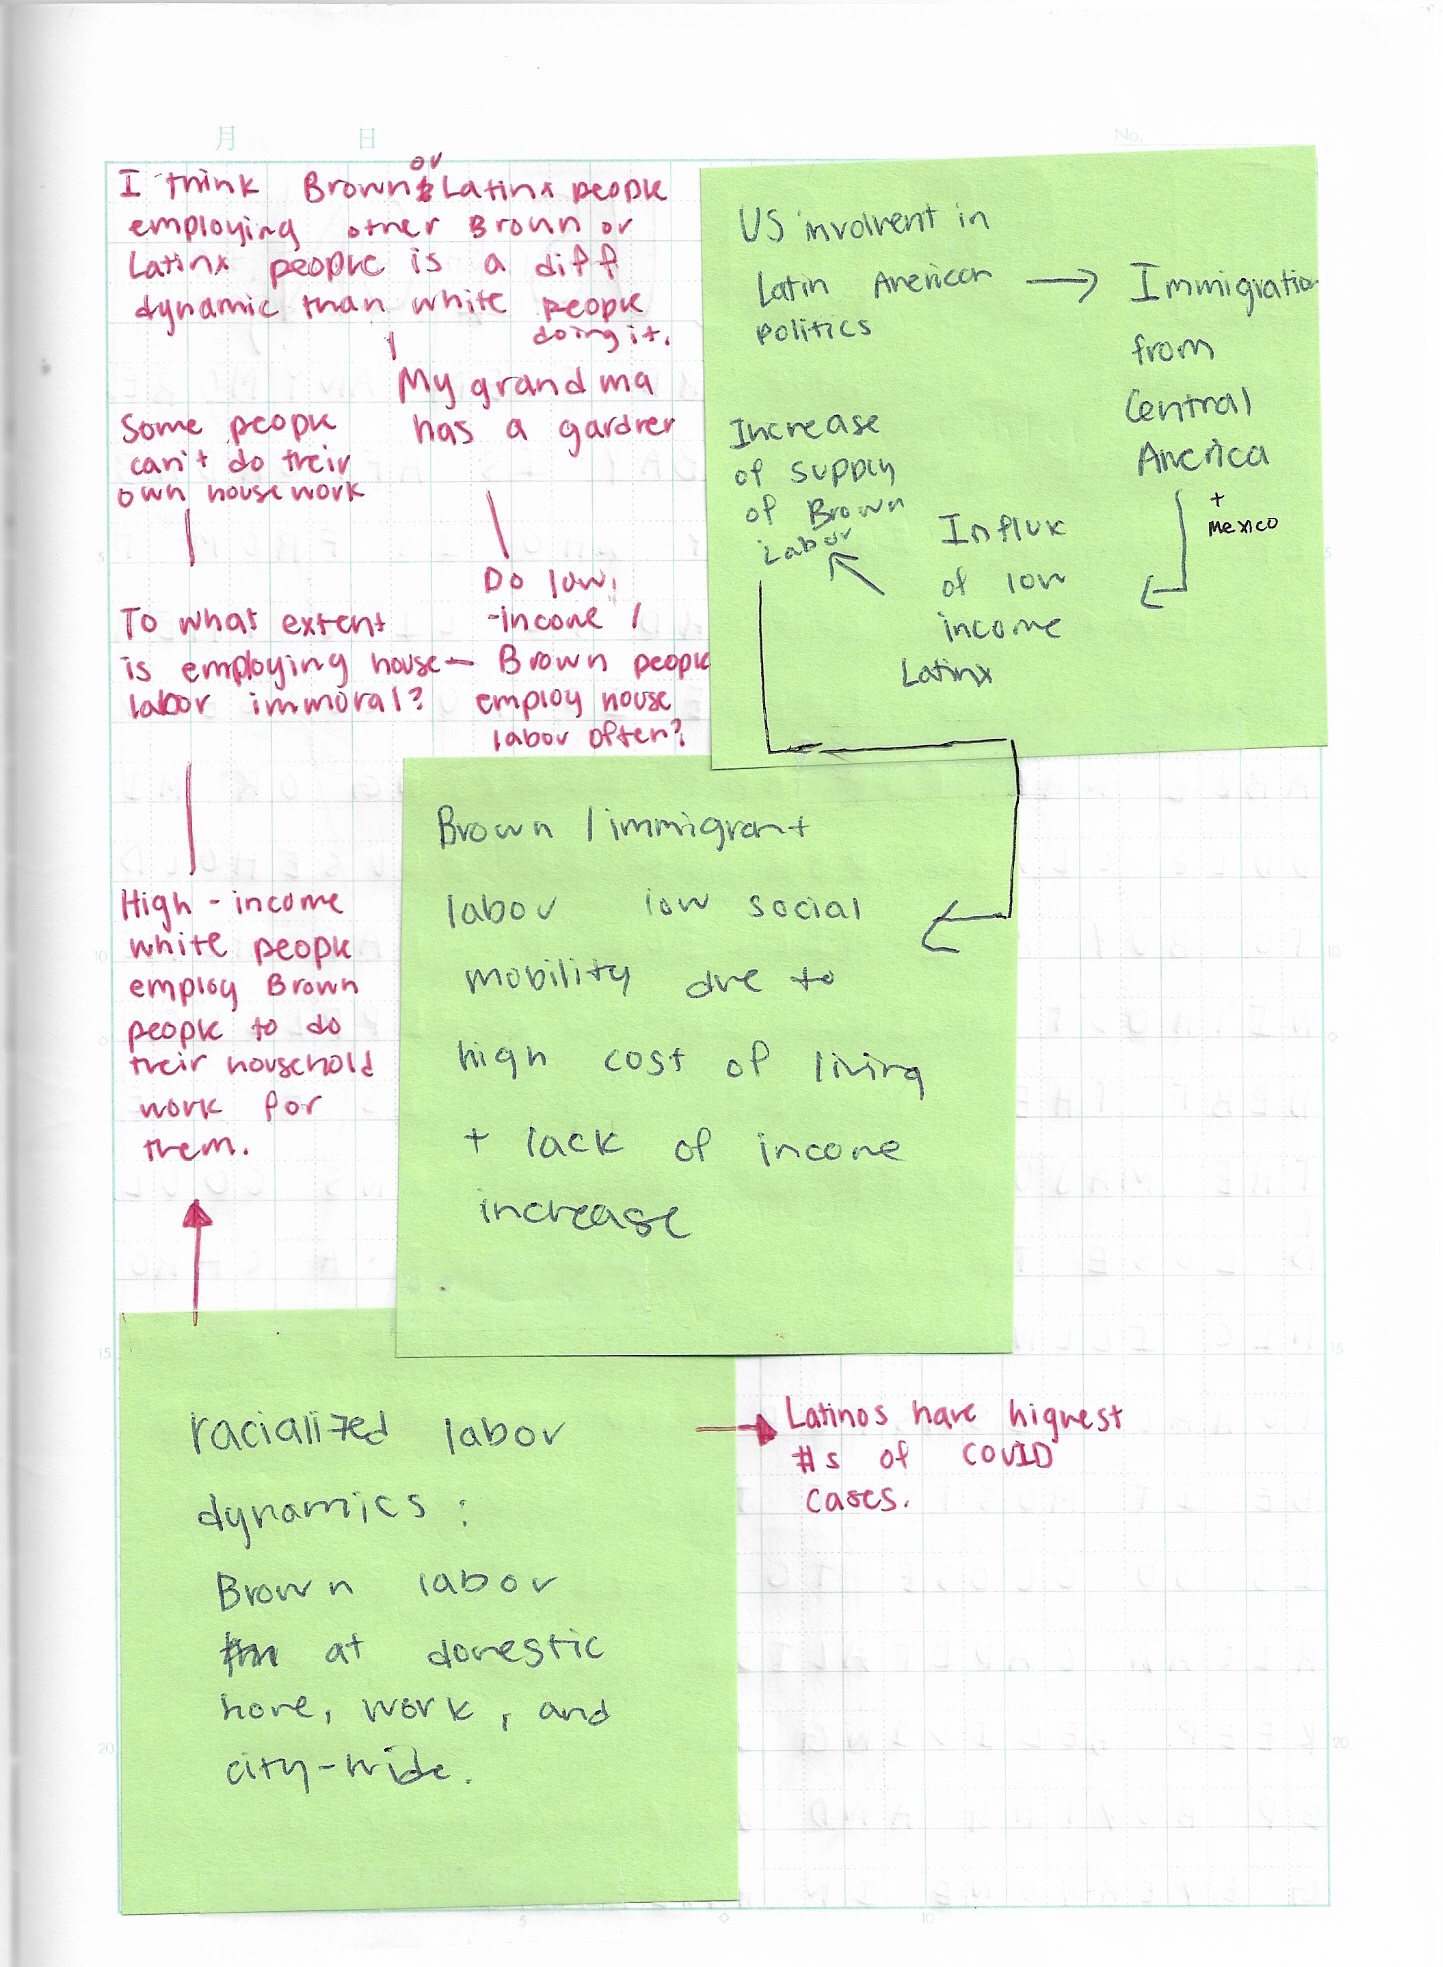 月 日 No.
I think Brown or Latinx people
employing other Brown or
Latinx people is a diff
dynamic than white people
doing it.
My grandma
has a gardner
Some people
can't do their
own housework
Do low
-income /
Brown people
employ house
labor often?
To what extent
is employing house
labor immoral?
High-income
white people
employ Brown
people to do
their household
work for
them.
US involvent in
Latin American
politics
Immigration
from
Central
America
+
Mexico
Influx
of low
income
Latinx
Increase
of supply
of Brown
Labor
Brown / immigrant
labor low social
mobility due to
high cost of living
+ lack of income
increase
racialized labor
dynamics:
Brown labor
at domestic
home, work, and
city-wide.
Latinos have highest
#s of COVID
cases.
5
10
15
20
5
10
15
20
5
10